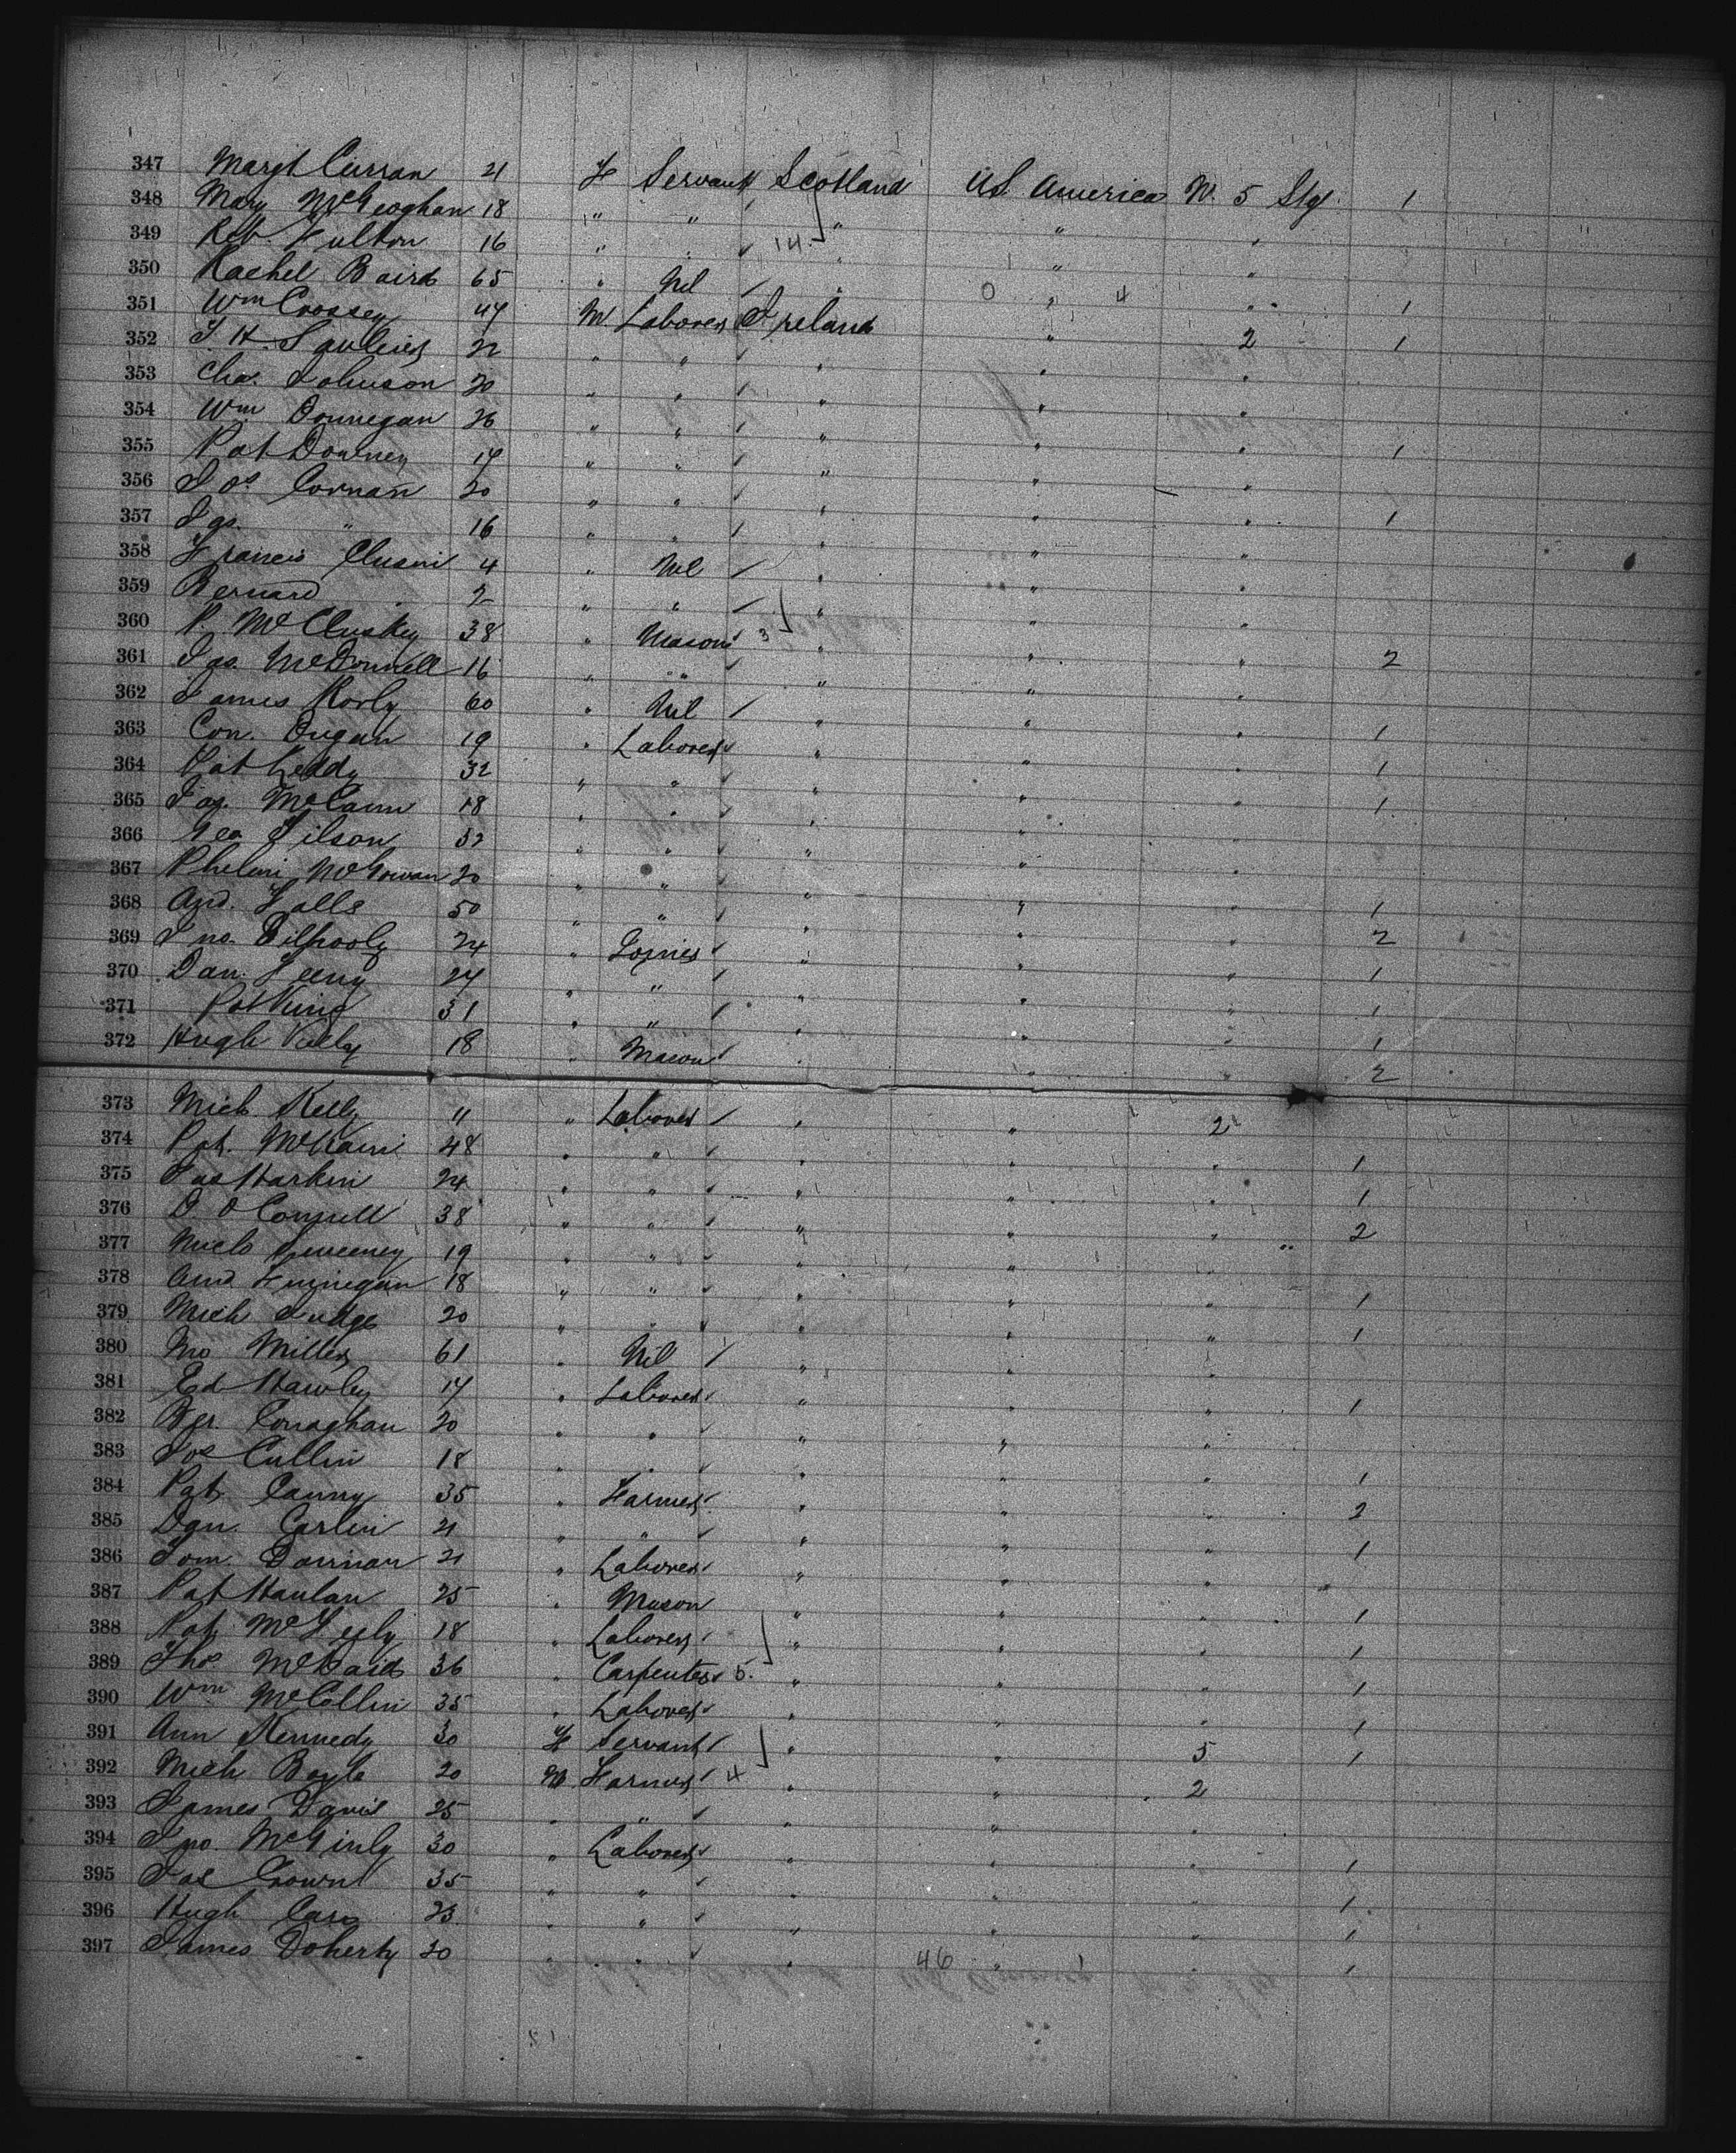 347 Margt Curran 21 F Servant Scotland US America W. 5 Stg. 1
348 Mary McGeoghan 18 " " " "
349 Reb. Fulton 16 " " 14 " "
350 Rachel Baird 65 " Nil " 0 " 4 " 1
351 Wm Crossey 47 M Laborer Ireland " 2 1
352 22 " " " " "
353 Cha. Johnson 20 " " " " "
354 Wm Donnegan 26 " " " " " 1
355 Pat Downey 17 " " " " "
356 Jos Cornan 20 " " " " " 1
357 Jas. " 16 " " " " "
358 Francis 4 " Nil " " "
359 Bernard 2 " " " " "
360 P. McCluskey 38 " Mason 3 " " " 2
361 Jas. McDonnell 16 " " " " "
362 James 60 " Nil " " " 1
363 Con. Dugan 19 " Laborer " " " 1
364 Pat Leddy 32 " " " " " 1
365 Jas. McCann 18 " " " "
366 Geo Wilson 32 " " " "
367 Phelim McGowan 20 " " " " " 1
368 And. Falls 50 " " " " " 2
369 Jno. Gilhooly 24 " Joiner " " " 1
370 Dan. Feeny 27 " " " " " 1
371 Pat King 31 " " " " " 1
372 Hugh Kelly 18 " Mason " " " 2
373 Mich Kelly 11 " Laborer " " 2
374 Pat. McCann 48 " " " " " 1
375 Jas Harkin 24 " " " " " 1
376 D O Connell 38 " " " " " 2
377 Mich Sweeney 19 " " " "
378 And Finnegan 18 " " " " " 1
379 Mich Judge 20 " " " " " 1
380 Jno Miller 61 " Nil " "
381 Ed Hawley 17 " Laborer " " 1
382 Ber. Conaghan 20 " " " " "
383 Jos Cullin 18 " " " " 1
384 Pat. Canny 35 " Farmer " " " 2
385 Dan. Carlin 21 " " " " " 1
386 Tom. 21 " Laborer " " "
387 Pat Hanlan 25 " Mason " " " 1
388 Pat. McFeely 18 " Laborer " " " 1
389 Thos McDaid 36 " Carpenter 5. " " " 1
390 Wm McCollin 35 " Laborer " " 1
391 Ann Kennedy 30 F Servant " " 5 1
392 Mich Boyle 20 M Farmer 4 " " 2
393 James Davis 25 " " " " "
394 Jno. McGinly 30 " Laborer " " " 1
395 Jas 35 " " " " " 1
396 Hugh 23 " " " " " 1
397 James Doherty 20 " " " 46 " " 1